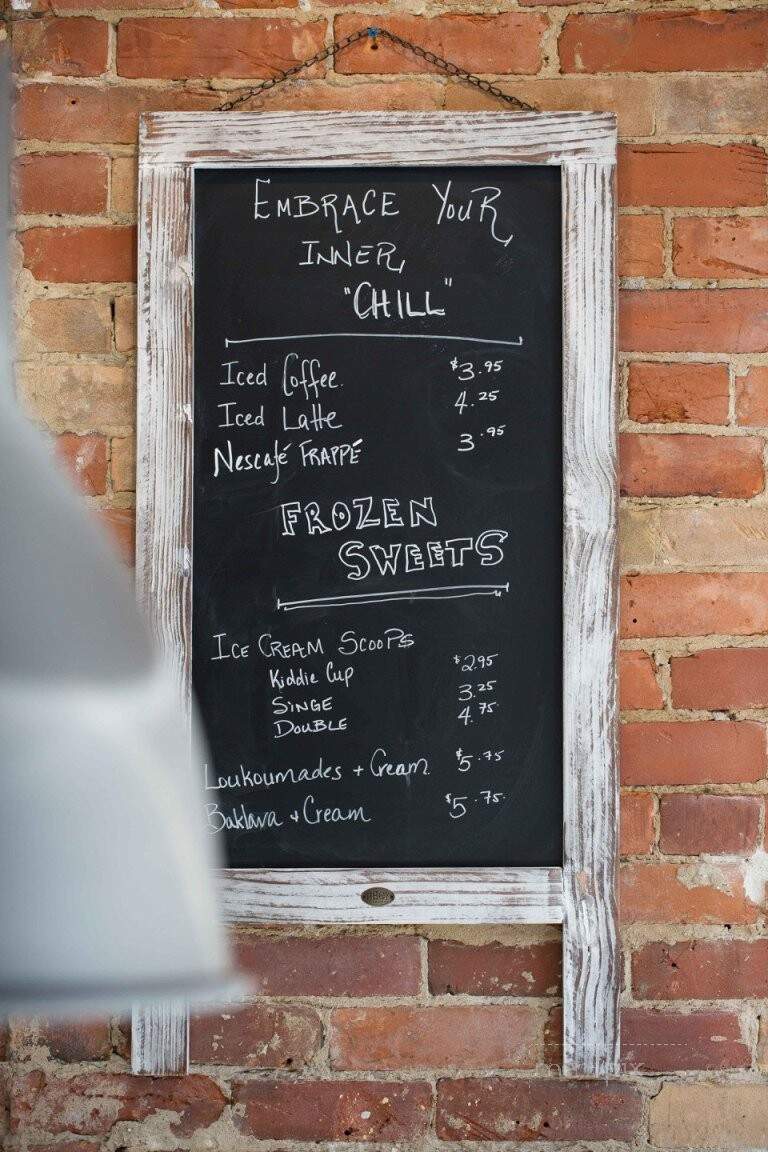 EMBRACE YOUR
INNER
"CHILL"
Iced Coffee $3.95
Iced Latte 4.25
Nescafé FRAPPÉ 3.95
FROZEN
SWEETS
ICE CREAM SCOOPS
Kiddie Cup $2.95
SINGE 3.25
DOUBLE 4.75
Loukoumades + Cream $5.75
Baklava + Cream $5.75